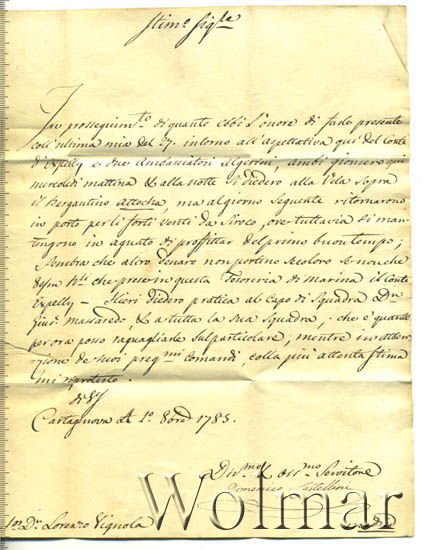 Stimo Sigre
In proseguimto di quanto ebbi l'onore di farle presente
coll'ultima mia del 27. intorno all'aspettativa quì del Conte
d'Expelly e due Ambasciatori Algerini, ambi giunsero quì
mercoledì mattina & alla notte si diedero alla Vela sopra
il Bergantino Attocha, ma al giorno seguente ritornarono
in porto per li forti venti da Siroco, ove tuttavia si man-
tengono in aguato di profittar del primo buon tempo;
Sembra che altro denaro non portino secoloro se non che
che prese in questa Tesoreria di marina il Conte
Expelly — Hieri diedero pratica al Capo di Squadra Dn
Gius. Massaredo, & a tutta la sua Squadra, che è quanto
per ora posso raguagliarle sul particolare, mentre in atten-
zione de suoi pregmi comandi, colla più attenta stima
mi riprotesto
Cartagnova A 1o. 1785.
Divmo & Obmo Servitore
Domenico
Wolmar
Dn Lorenzo Vignola